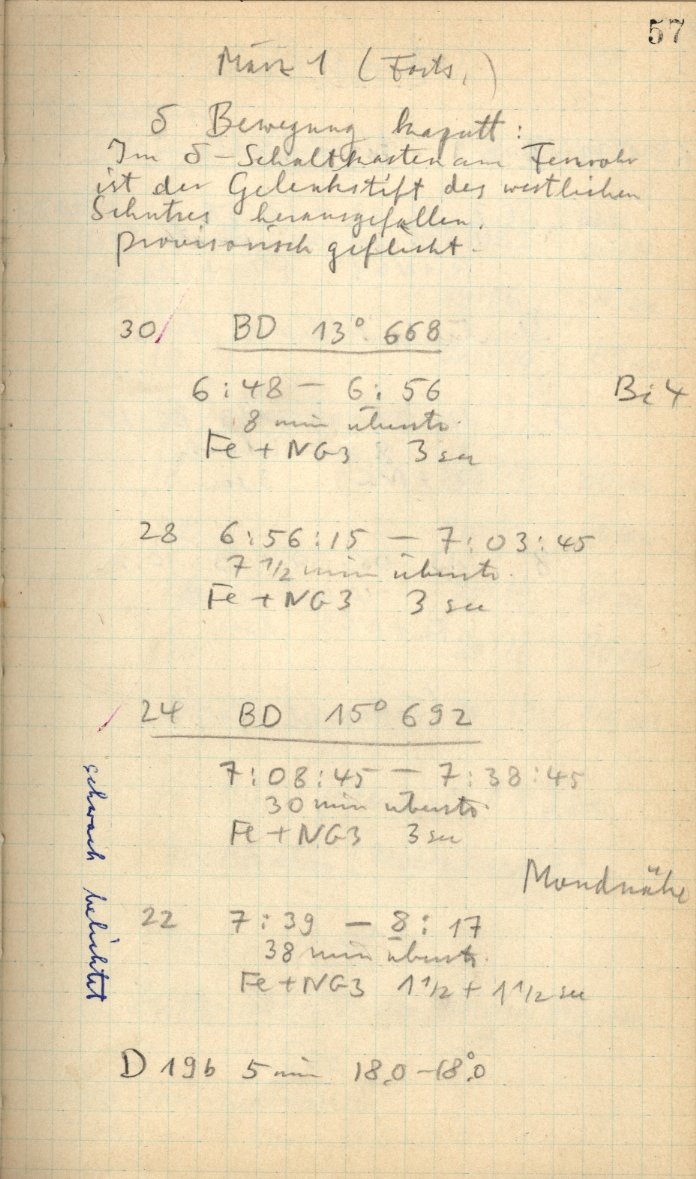 57
März 1 (Forts.)
δ Bewegung kaputt:
Im δ-Schaltkasten am Fernrohr
ist der Gelenkstift des westlichen
Schützes herausgefallen.
provisorisch geflickt.
30/ BD 13° 668
6:48 – 6:56 Bi 4
8 min überstr.
Fe + NG3 3 sec
28 6:56:15 – 7:03:45
7 1/2 min überstr.
Fe + NG3 3 sec
/ 24 BD 15° 692
7:08:45 – 7:38:45
30 min überstr.
Fe + NG3 3 sec
schwach belichtet
Mondnähe
22 7:39 – 8:17
38 min überstr.
Fe + NG3 1 1/2 + 1 1/2 sec
D 19b 5 min 18,0 – 18°,0